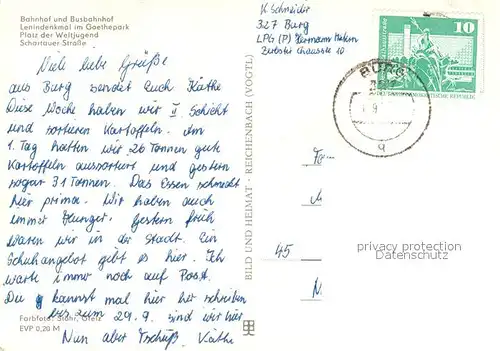 Bahnhof und Busbahnhof
Lenindenkmal im Goethepark
Platz der Weltjugend
Schartauer Straße
Viele liebe Grüße
aus Burg sendet Euch Käthe
Diese Woche haben wir II. Schicht
und sortieren Kartoffeln. Am
1. Tag hatten wir 26 Tonnen gute
Kartoffeln aussortiert und gestern
sogar 31 Tonnen. Das Essen schmeckt
hier prima. Wir haben auch
immer Hunger. Gestern früh
waren wir in der Stadt. Ein
Schuhangebot gibt es hier. Ich
warte immer noch auf Post.
Du kannst mal hier her schreiben
bis zum 29.9. sind wir hier
Nun aber Tschüß Käthe
Farbfoto: Stöhr, Greiz
EVP 0,20 M
BILD UND HEIMAT · REICHENBACH (VOGTL)
K Schneider
327 Burg
LPG (P) Hermann Matern
Zerbster Chaussee 10
10
DEUTSCHE DEMOKRATISCHE REPUBLIK
BURG
9
q
45
privacy protection
watermark